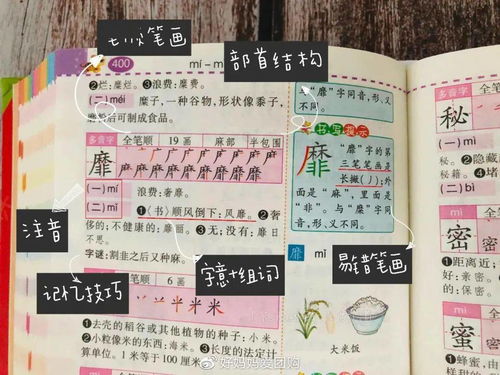 七八火笔画
400
mí – m
部首结构
❷烂：糜烂。❸浪费：糜费。
(二) méi 糜子，一种谷物，形状像黍子，
磨粉后可制成食品。
“靡”字同音，形、义
不同。
多音字 全笔顺 19画 麻部 半包围
靡
(一) mí 浪费：奢靡。
(二) mǐ ❶〈书〉顺风倒下：风靡。❷奢
侈的；不健康的：靡丽。❸无；没有：靡日
不思。
字谜：割韭之后又种麻。
书写提示
靡
“靡”字的
第三笔笔画是
长撇(丿)；外
面是“麻”，里面是
“非”。与“糜”字同
音，形、义不同。
注音
记忆技巧
字意+组词
易错笔画
mǐ
全笔顺 6画
米
❶去壳的稻谷或其他植物的种子：小米。
❷小粒像米的东西：海米。❸长度的法定计
算单位。1米等于100厘米
大米饭
多音字
秘
mì
秘。❷隐藏
秘籍。❹堵
(二) bì
mì
密
❶距离近；
好：亲密。
的：保密。
mì
蜜
❶蜂蜜，由
@好妈妈爱团购